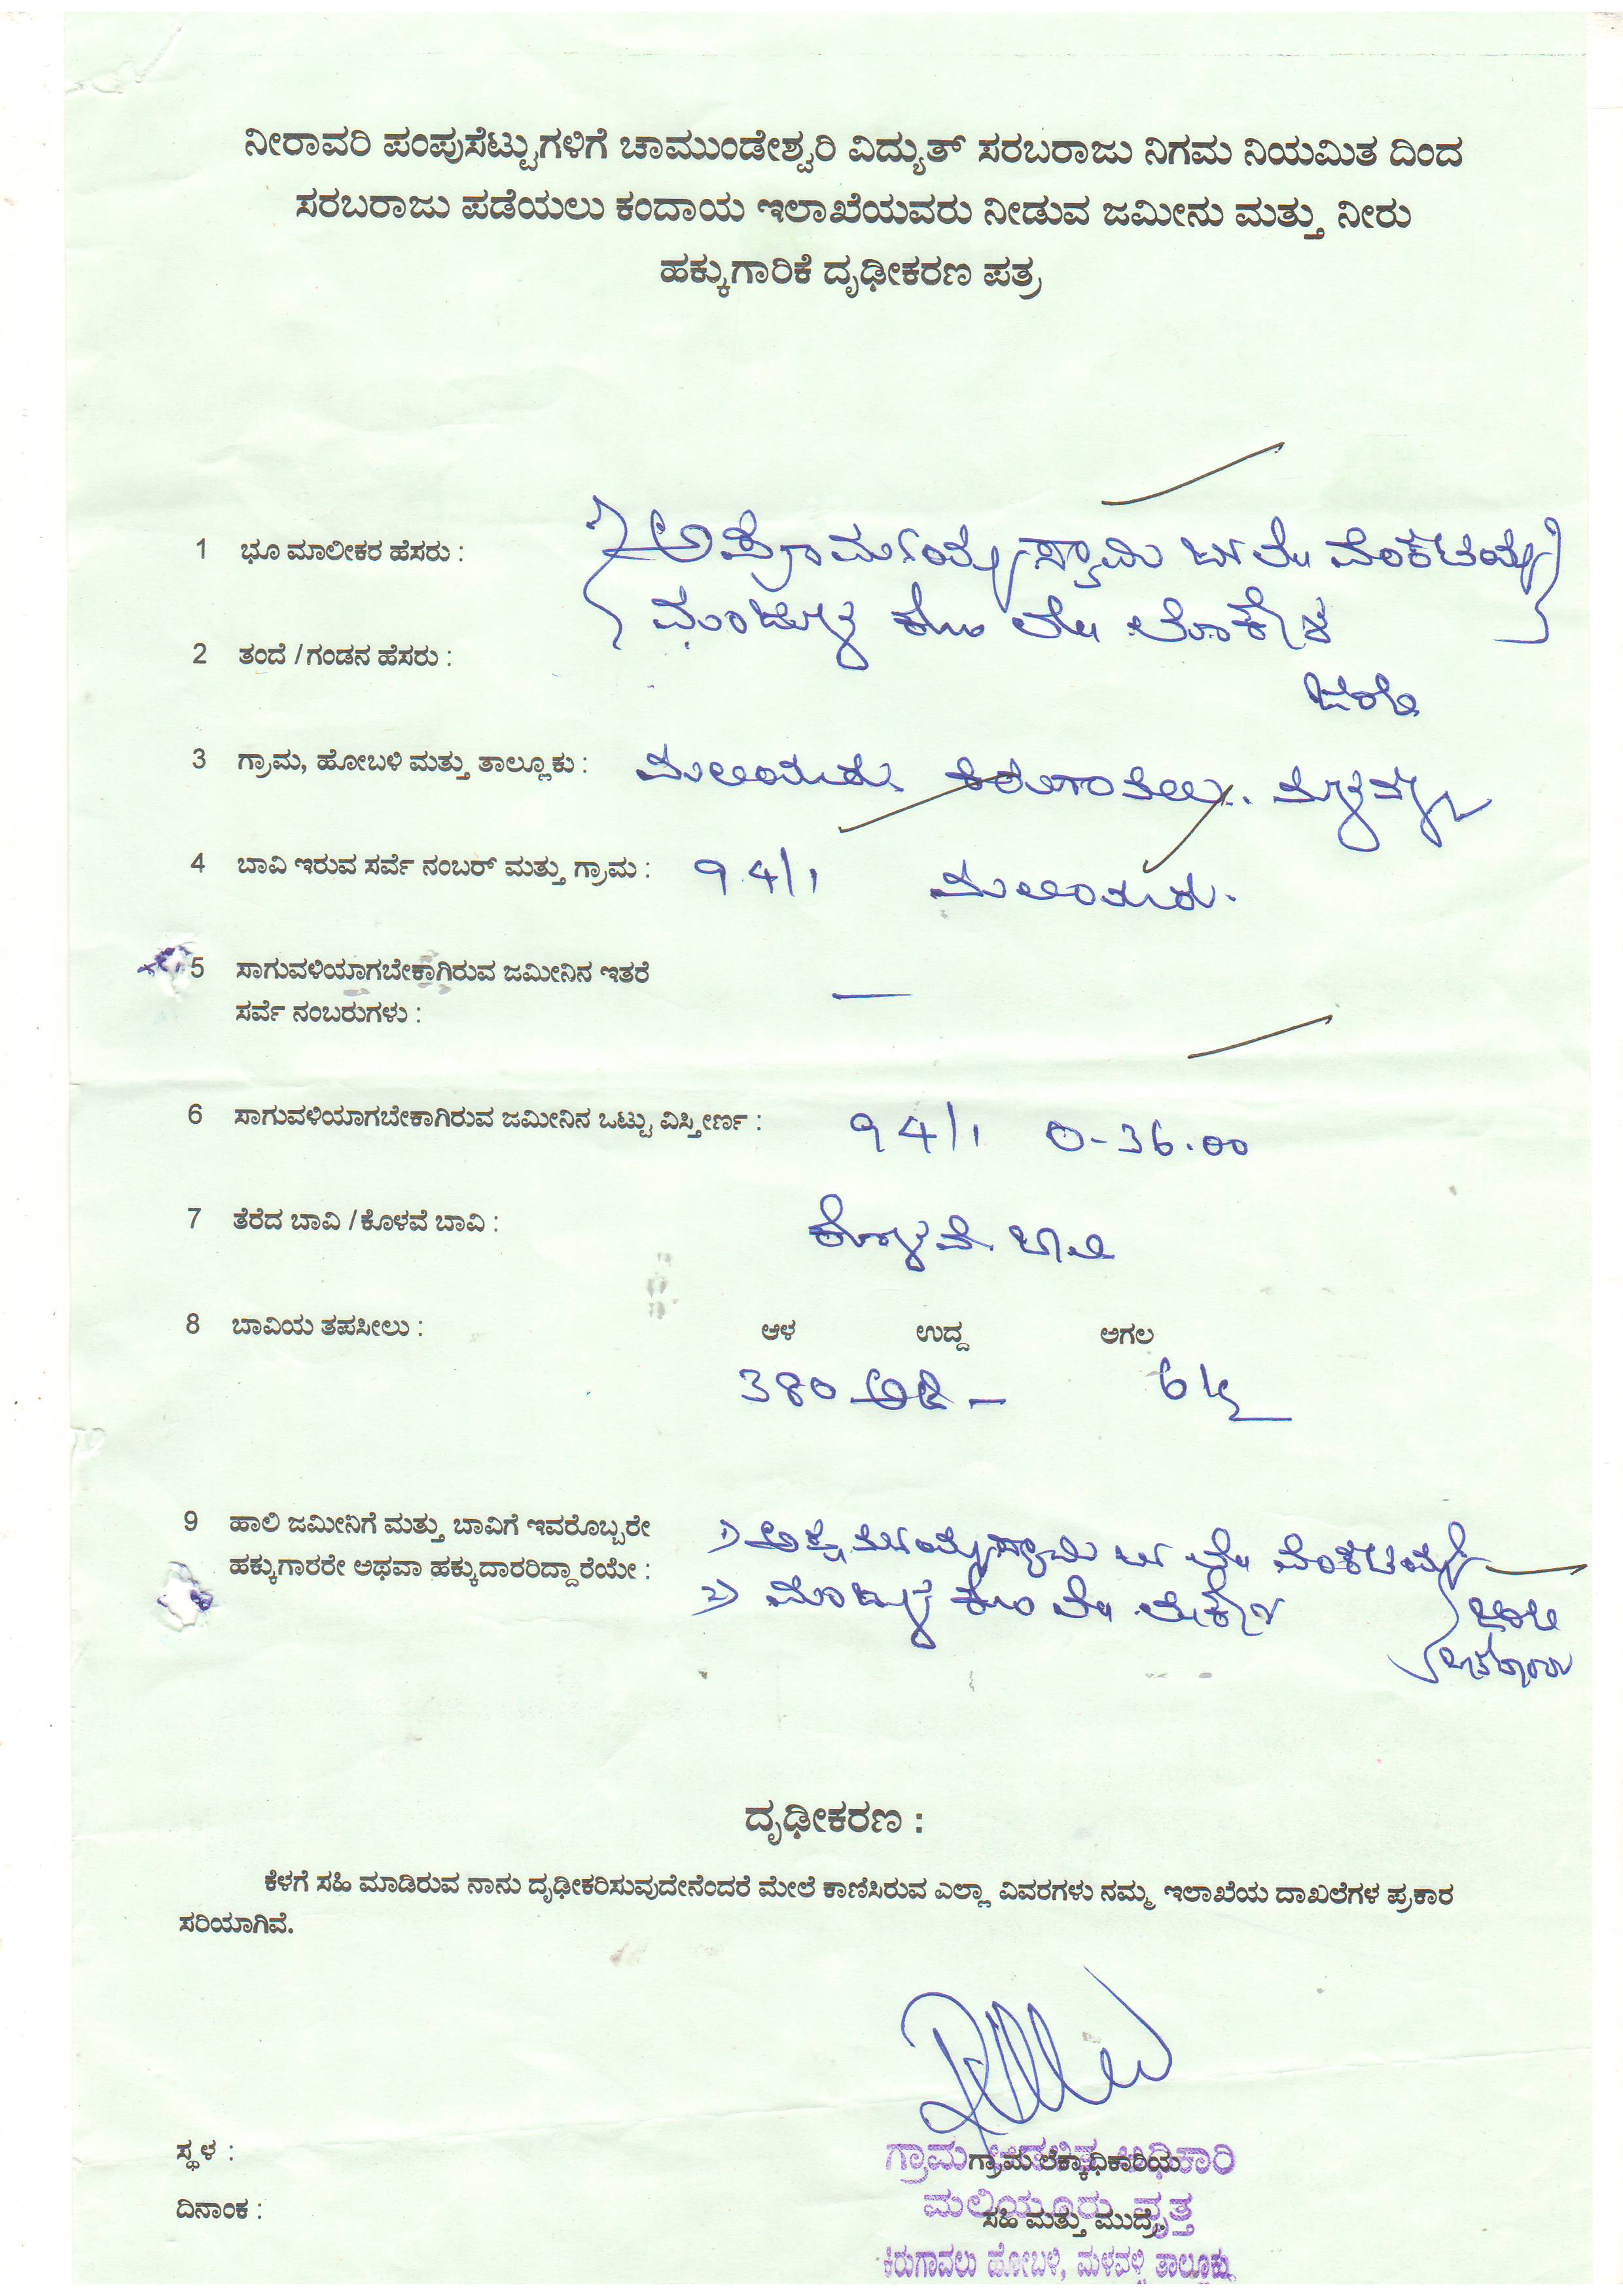 ನೀರಾವರಿ ಪಂಪುಸೆಟ್ಟುಗಳಿಗೆ ಚಾಮುಂಡೇಶ್ವರಿ ವಿದ್ಯುತ್ ಸರಬರಾಜು ನಿಗಮ ನಿಯಮಿತ ದಿಂದ
ಸರಬರಾಜು ಪಡೆಯಲು ಕಂದಾಯ ಇಲಾಖೆಯವರು ನೀಡುವ ಜಮೀನು ಮತ್ತು ನೀರು
ಹಕ್ಕುಗಾರಿಕೆ ದೃಢೀಕರಣ ಪತ್ರ
1 ಭೂ ಮಾಲೀಕರ ಹೆಸರು :
ವೆಂಕಟಯ್ಯ
2 ತಂದೆ / ಗಂಡನ ಹೆಸರು :
ಜಂಟಿ
3 ಗ್ರಾಮ, ಹೋಬಳಿ ಮತ್ತು ತಾಲ್ಲೂಕು : ಮಲಿಯೂರು ಕಿರುಗಾವಲು. ಮಳವಳ್ಳಿ
4 ಬಾವಿ ಇರುವ ಸರ್ವೆ ನಂಬರ್ ಮತ್ತು ಗ್ರಾಮ : 94/1 ಮಲಿಯೂರು.
5 ಸಾಗುವಳಿಯಾಗಬೇಕಾಗಿರುವ ಜಮೀನಿನ ಇತರೆ —
ಸರ್ವೆ ನಂಬರುಗಳು :
6 ಸಾಗುವಳಿಯಾಗಬೇಕಾಗಿರುವ ಜಮೀನಿನ ಒಟ್ಟು ವಿಸ್ತೀರ್ಣ : 94/1 0-36.00
7 ತೆರೆದ ಬಾವಿ / ಕೊಳವೆ ಬಾವಿ : ಕೊಳವೆ ಬಾವಿ
8 ಬಾವಿಯ ತಪಸೀಲು : ಆಳ ಉದ್ದ ಅಗಲ
380 ಅಡಿ – 6½
9 ಹಾಲಿ ಜಮೀನಿಗೆ ಮತ್ತು ಬಾವಿಗೆ ಇವರೊಬ್ಬರೇ 1) ವೆಂಕಟಯ್ಯ
ಹಕ್ಕುಗಾರರೇ ಅಥವಾ ಹಕ್ಕುದಾರರಿದ್ದಾರೆಯೇ : 2) ಜಂಟಿ
ದೃಢೀಕರಣ :
ಕೆಳಗೆ ಸಹಿ ಮಾಡಿರುವ ನಾನು ದೃಢೀಕರಿಸುವುದೇನೆಂದರೆ ಮೇಲೆ ಕಾಣಿಸಿರುವ ಎಲ್ಲಾ ವಿವರಗಳು ನಮ್ಮ ಇಲಾಖೆಯ ದಾಖಲೆಗಳ ಪ್ರಕಾರ
ಸರಿಯಾಗಿವೆ.
ಸ್ಥಳ : ಗ್ರಾಮ ಲೆಕ್ಕಾಧಿಕಾರಿಯ
ಗ್ರಾಮ ಆಡಳಿತ ಅಧಿಕಾರಿ
ಮಲಿಯೂರು ವೃತ್ತ
ದಿನಾಂಕ : ಸಹಿ ಮತ್ತು ಮುದ್ರೆ
ಕಿರುಗಾವಲು ಹೋಬಳಿ, ಮಳವಳ್ಳಿ ತಾಲ್ಲೂಕು